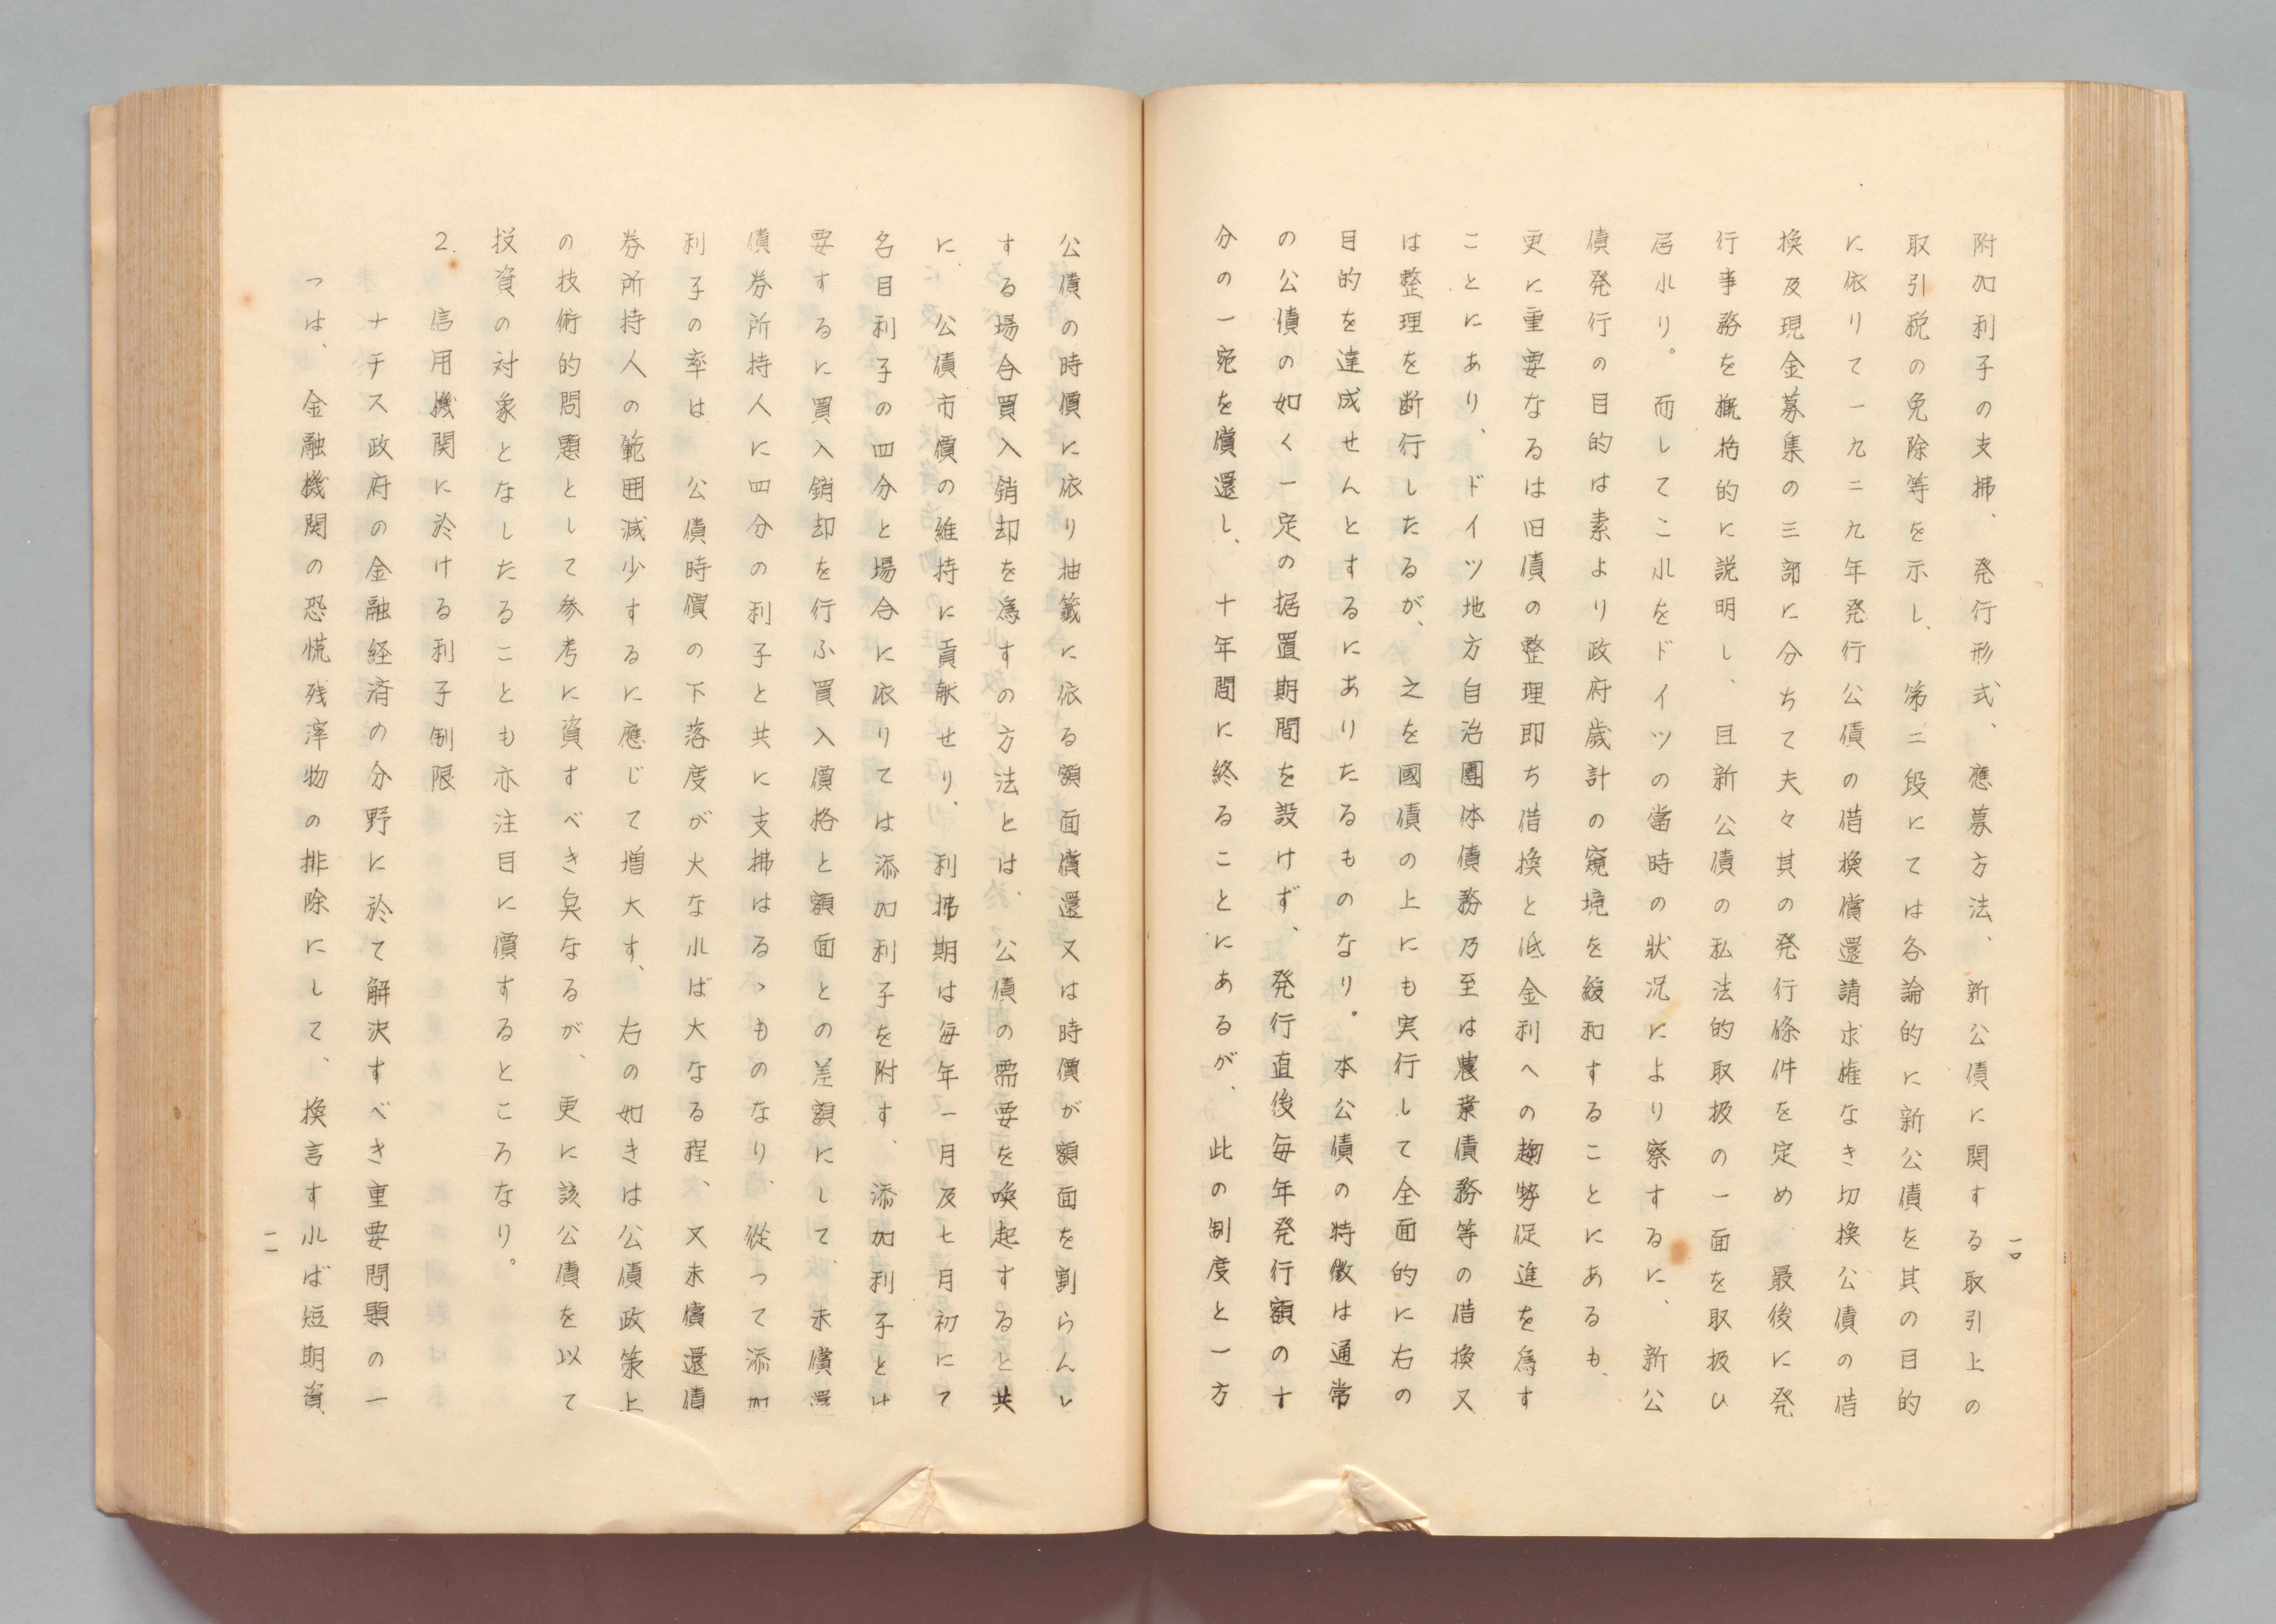 附加利子の支拂、発行形式、應募方法、新公債に関する取引上の
取引税の免除等を示し、第二段にては各論的に新公債を其の目的
に依りて一九二九年発行公債の借換償還請求権なき切換公債の借
換及現金募集の三部に分ちて夫々其の発行條件を定め　最後に発
行事務を概括的に説明し、且新公債の私法的取扱の一面を取扱ひ
居れり。而してこれをドイツの當時の狀況により察するに、新公
債発行の目的は素より政府歳計の窺境を緩和することにあるも、
更に重要なるは旧債の整理即ち借換と低金利への趨勢促進を為す
ことにあり、ドイツ地方自治團体債務乃至は農業債務等の借換又
は整理を断行したるが、之を國債の上にも実行して全面的に右の
目的を達成せんとするにありたるものなり。本公債の特徴は通常
の公債の如く一定の据置期間を設けず、発行直後毎年発行額の十
分の一宛を償還し、十年間に終ることにあるが、此の制度と一方
一〇
公債の時價に依り抽籤に依る額面償還又は時價が額面を割らんと
する場合買入銷却を為すの方法とは、公債の需要を喚起すると共
に、公債市價の維持に貢献せり、利拂期は毎年一月及七月初にて
名目利子の四分と場合に依りては添加利子を附す、添加利子とは
要するに買入銷却を行ふ買入價格と額面との差額にして、未償還
債券所持人に四分の利子と共に支拂はるゝものなり、從つて添加
利子の率は　公債時價の下落度が大なれば大なる程、又未償還債
券所持人の範囲減少するに應じて増大す、右の如きは公債政策上
の技術的問題として参考に資すべき矣なるが、更に該公債を以て
投資の対象となしたることも亦注目に價するところなり。
2.　信用機関に於ける利子制限
ナチス政府の金融経済の分野に於て解決すべき重要問題の一
つは、金融機関の恐慌残滓物の排除にして、換言すれば短期資
一一